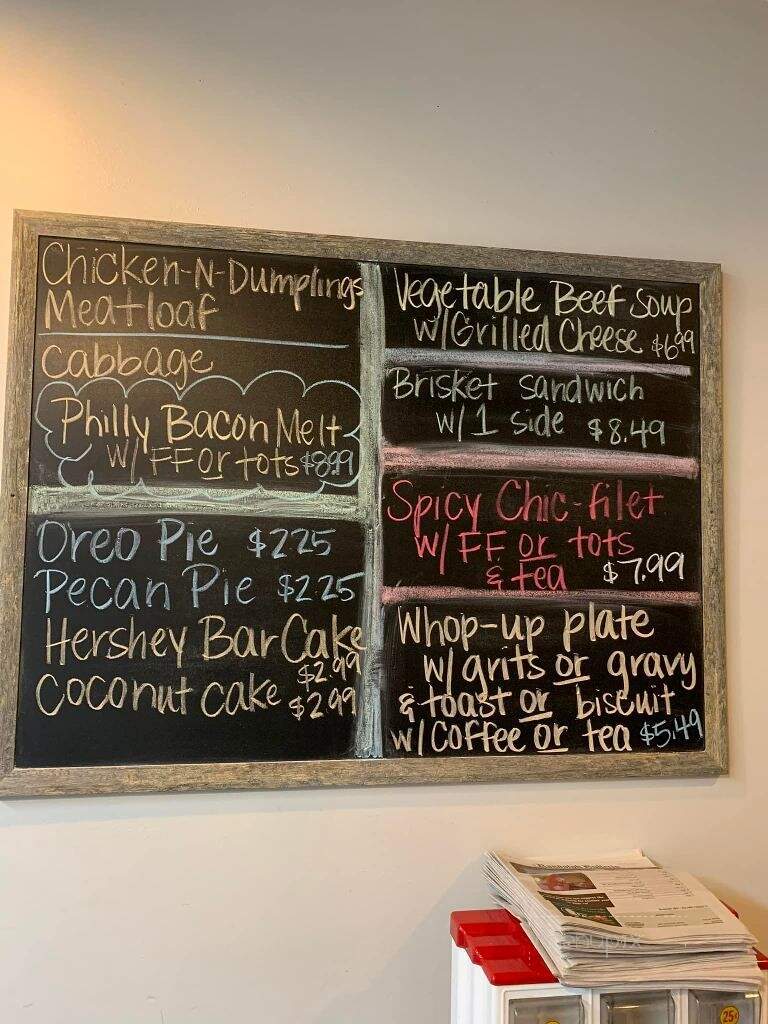 Chicken-N-Dumplings
Meatloaf
Cabbage
Philly Bacon Melt
w/ FF or tots $8.99
Oreo Pie $2.25
Pecan Pie $2.25
Hershey Bar Cake
$2.99
Coconut cake $2.99
Vegetable Beef Soup
w/Grilled Cheese $6.99
Brisket sandwich
w/ 1 side $8.49
Spicy Chic-filet
w/ FF or tots
& tea $7.99
Whop-up plate
w/ grits or gravy
& toast or biscuit
w/ Coffee or tea $5.49
25¢